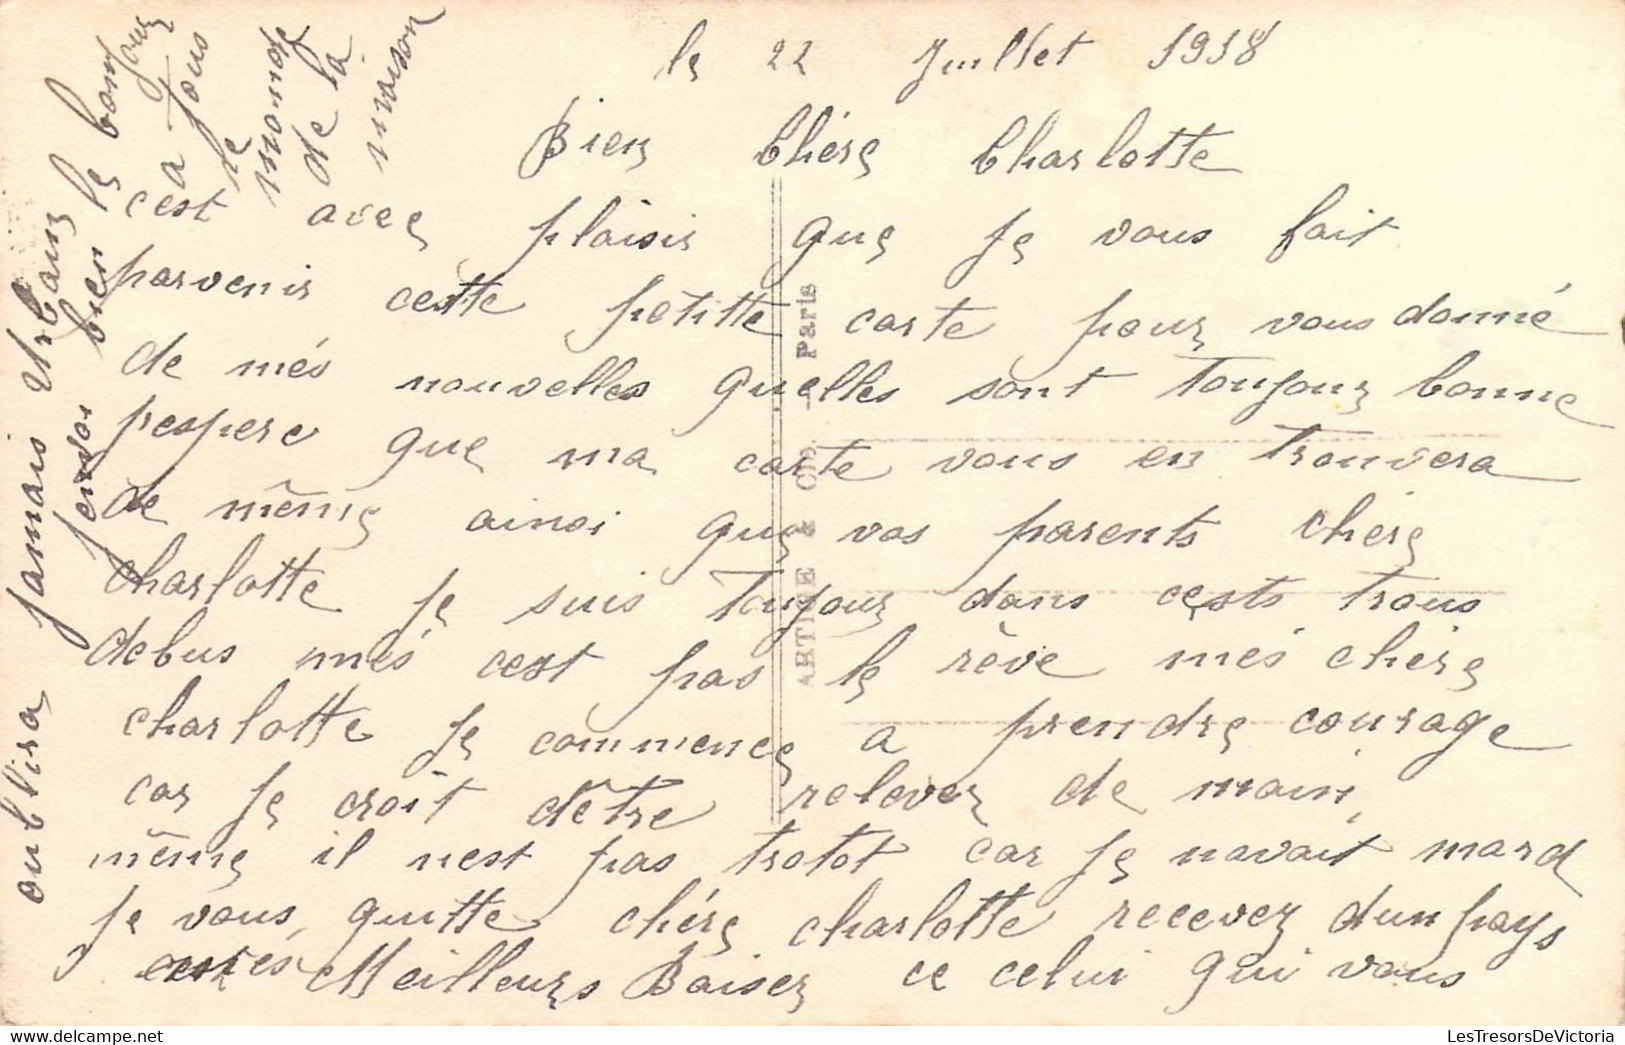 le 22 Juillet 1918
Bien Chère Charlotte
cest avec plaisir que je vous fait
parvenir cestte petitte carte pour vous donné
de més nouvelles quelles sont toujour bonne
jespere que ma carte vous en trouvera
de même ainsi que vos parents chère
charlotte je suis toujour dans cests trous
debus més cest pas le rêve més chère
charlotte je commence a prendre courage
car je croit dêtre relever de main
même il nest pas trotot car je navait mard
je vous quitte chére charlotte recevez dun pays
Meilleurs Baiser de celui qui vous
oubllira jamais Urbain
penser bien le bonjour
a tous
le
monde
de la
maison
ARTIGE & Cie. - Paris
LesTresorsDeVictoria.com